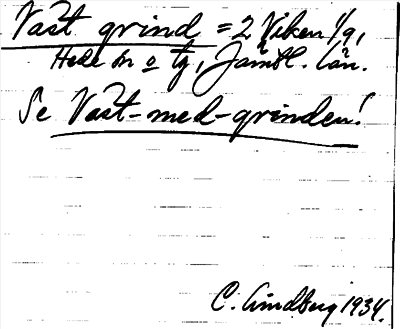 Väst grind = 2 Viken 1/9,
Hede sn o tg, Jämtl. län.
Se Väst-med-grinden!
C. Lindberg 1934.